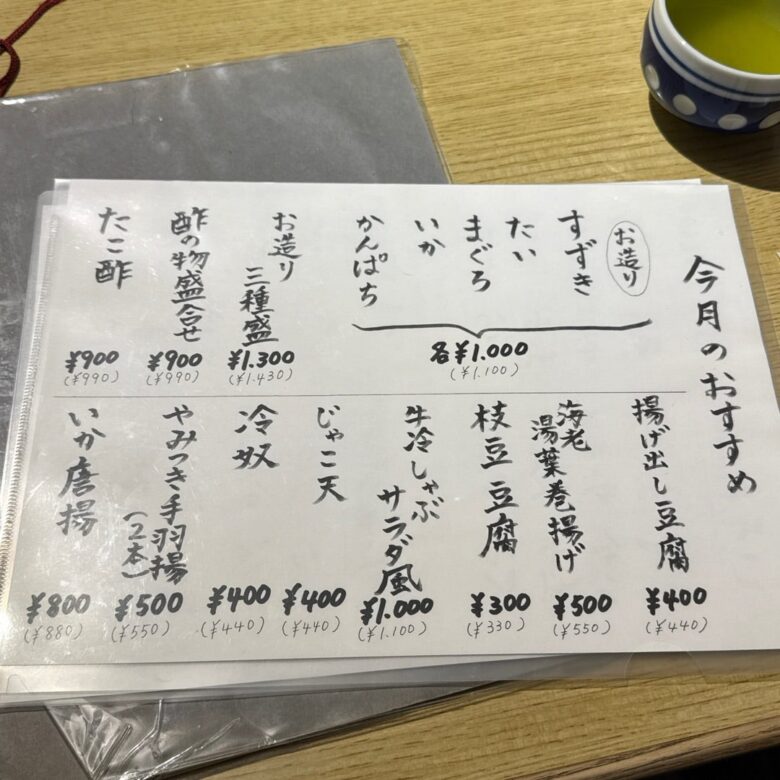 今月のおすすめ
お造り
すずき
たい
まぐろ
いか
かんぱち
各¥1.000
(¥1.100)
お造り
三種盛
¥1.300
(¥1.430)
酢の物盛合せ
¥900
(¥990)
たこ酢
¥900
(¥990)
揚げ出し豆腐
¥400
(¥440)
海老
湯葉巻揚げ
¥500
(¥550)
枝豆豆腐
¥300
(¥330)
牛冷しゃぶ
サラダ風
¥1.000
(¥1.100)
じゃこ天
¥400
(¥440)
冷奴
¥400
(¥440)
やみつき手羽揚
(2本)
¥500
(¥550)
いか唐揚
¥800
(¥880)